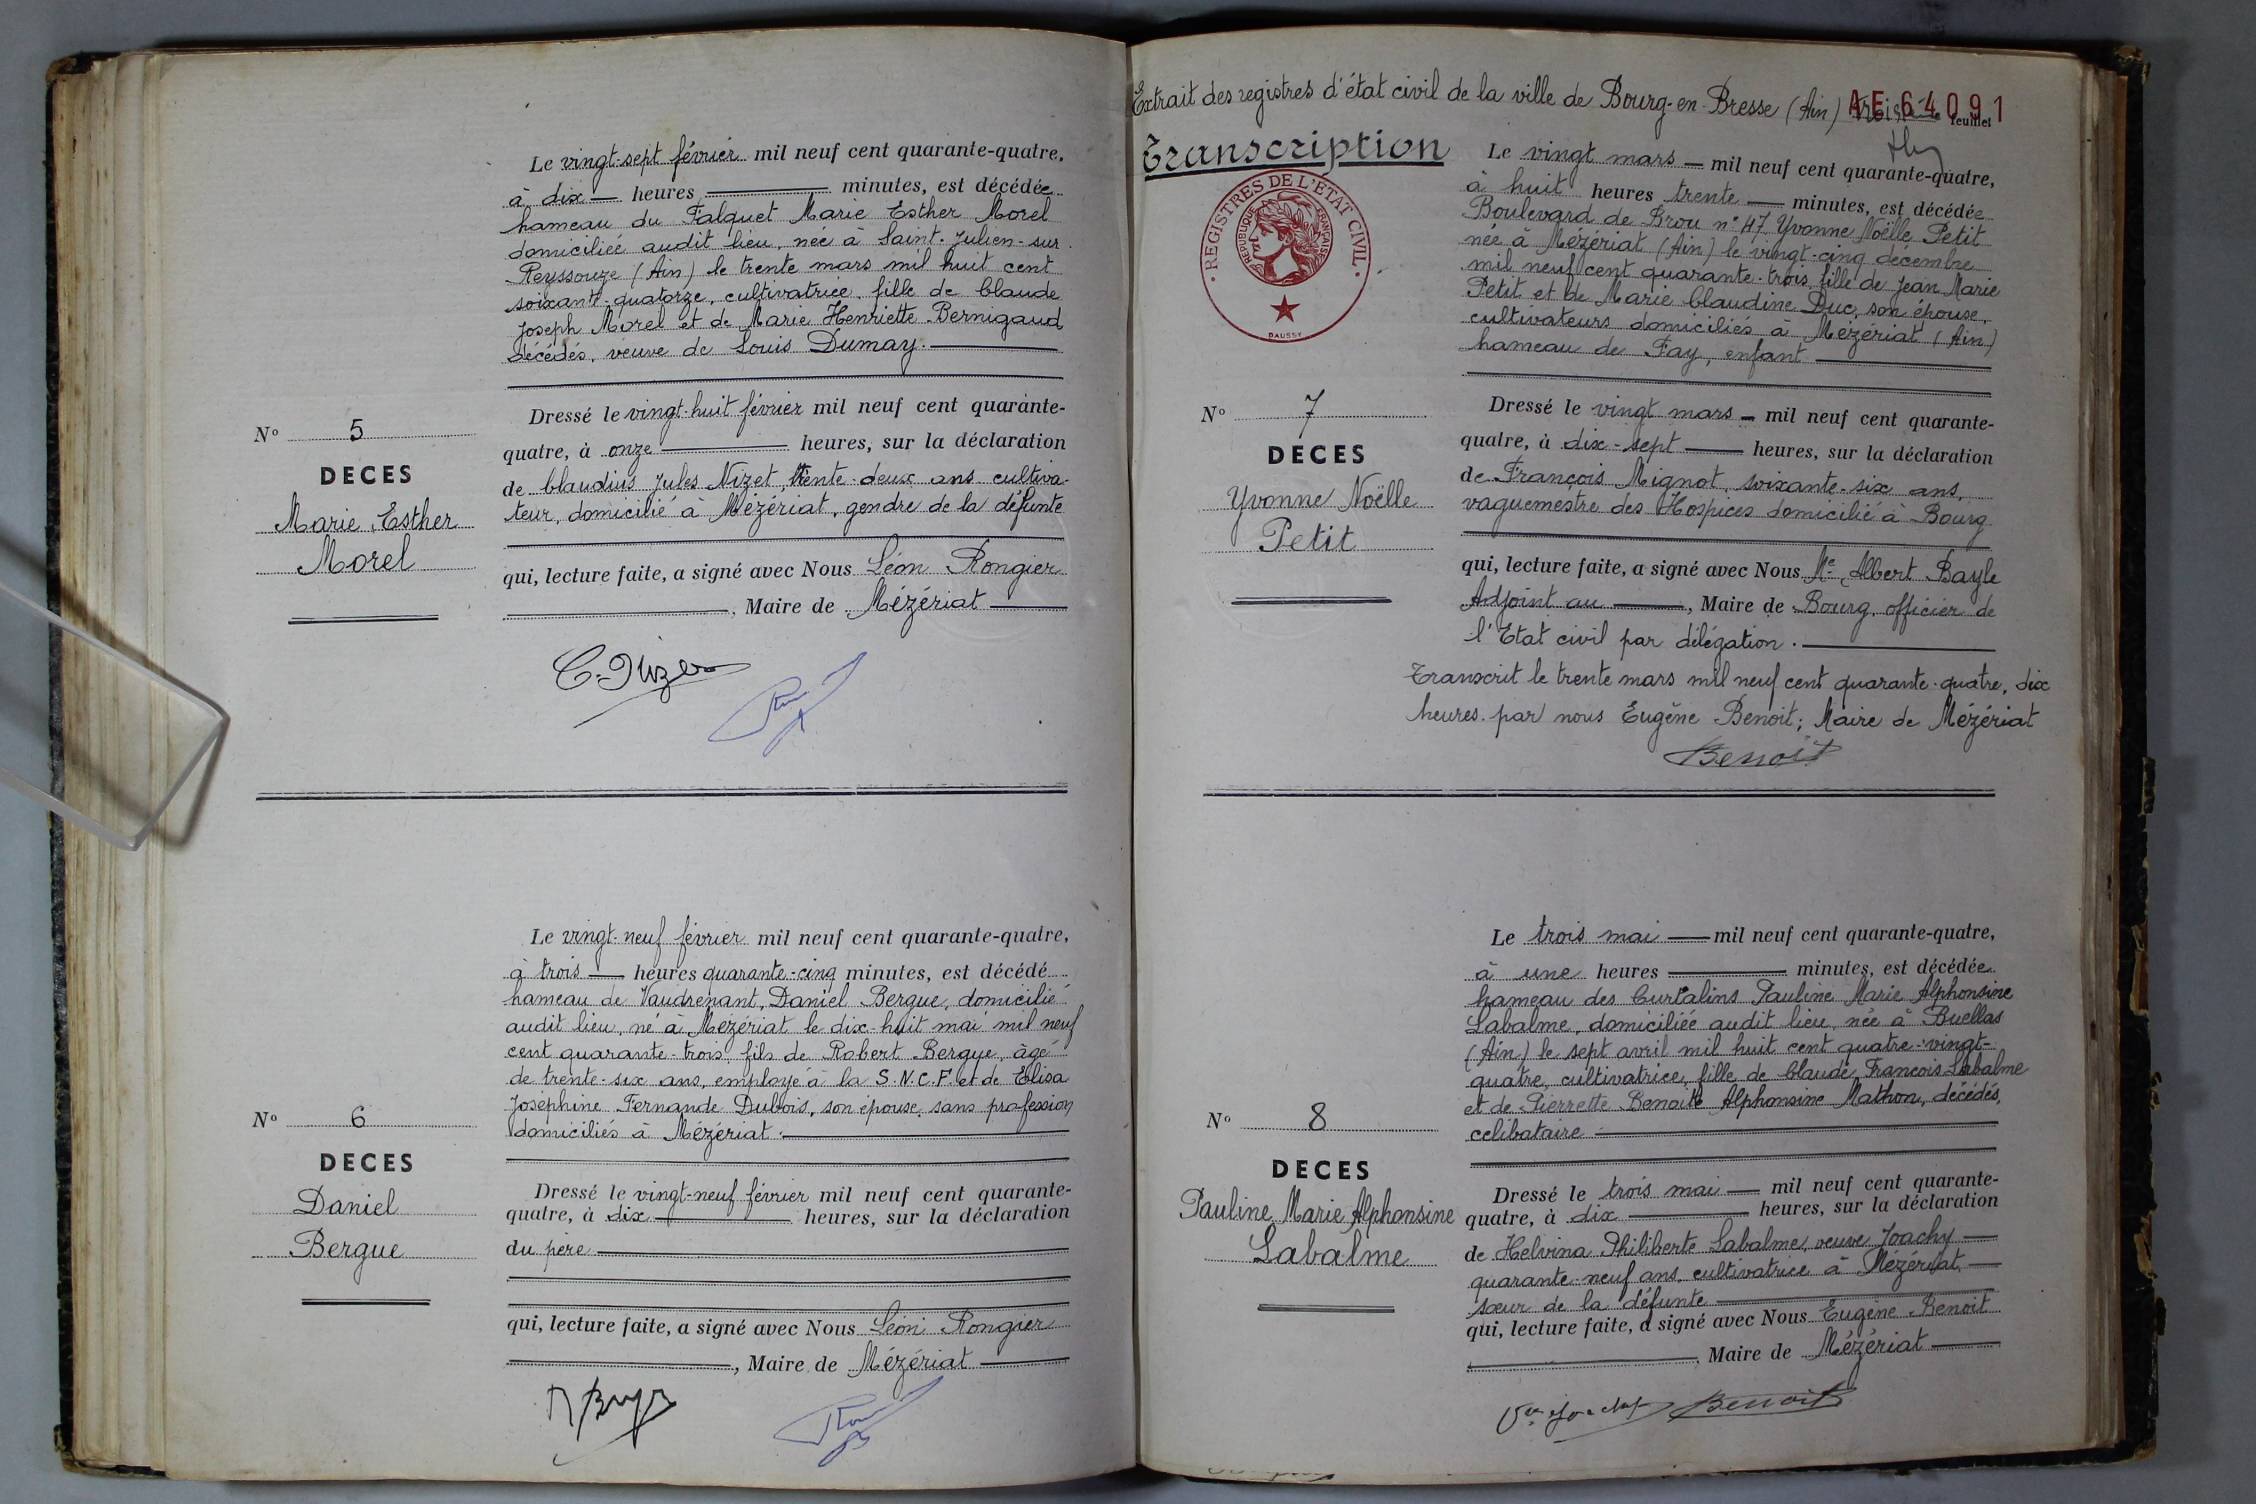 Le vingt-sept février mil neuf cent quarante-quatre,
à dix heures minutes, est décédée
hameau du Falquet Marie Esther Morel
domiciliée audit lieu, née à Saint-Julien-sur-
Reyssouze (Ain) le trente mars mil huit cent
soixante-quatorze, cultivatrice, fille de Claude
Joseph Morel et de Marie Henriette Bernigaud
décédés, veuve de Louis Dumay.
N° 5
DECES
Marie Esther
Morel
Dressé le vingt-huit février mil neuf cent quarante-
quatre, à onze heures, sur la déclaration
de Claudius Jules Nizet, trente-deux ans cultiva-
teur, domicilié à Mézériat, gendre de la défunte
qui, lecture faite, a signé avec Nous Léon Rongier
, Maire de Mézériat
C. Nizet
Le vingt-neuf février mil neuf cent quarante-quatre,
à trois heures quarante-cinq minutes, est décédé
hameau de Vaudrenant, Daniel Bergue, domicilié
audit lieu, né à Mézériat le dix-huit mai mil neuf
cent quarante-trois, fils de Robert Bergue, âgé
de trente-six ans, employé à la S.N.C.F. et de Elisa
Joséphine Fernande Dubois, son épouse, sans profession
domiciliés à Mézériat.
N° 6
DECES
Daniel
Bergue
Dressé le vingt-neuf février mil neuf cent quarante-
quatre, à dix heures, sur la déclaration
du père
qui, lecture faite, a signé avec Nous Léon Rongier
, Maire de Mézériat
Extrait des registres d'état civil de la ville de Bourg-en-Bresse (Ain)
AE 64091
feuillet
Transcription
REGISTRES DE L'ETAT CIVIL
REPUBLIQUE FRANÇAISE
DAUSSY
Le vingt mars mil neuf cent quarante-quatre,
à huit heures trente minutes, est décédée
Boulevard de Brou n° 47 Yvonne Noëlle Petit
née à Mézériat (Ain) le vingt-cinq décembre
mil neuf cent quarante-trois, fille de Jean Marie
Petit et de Marie Claudine Duc, son épouse,
cultivateurs domiciliés à Mézériat (Ain)
hameau de Fay, enfant
N° 7
DECES
Yvonne Noëlle
Petit
Dressé le vingt mars mil neuf cent quarante-
quatre, à dix-sept heures, sur la déclaration
de François Mignot, soixante-six ans,
vaguemestre des Hospices domicilié à Bourg
qui, lecture faite, a signé avec Nous Me Albert Bayle
Adjoint au , Maire de Bourg, officier de
l'Etat civil par délégation.
Transcrit le trente mars mil neuf cent quarante-quatre, dix
heures par nous Eugène Benoit, Maire de Mézériat
Benoit
Le trois mai mil neuf cent quarante-quatre,
à une heures minutes, est décédée
hameau des Curtalins Pauline Marie Alphonsine
Labalme, domiciliée audit lieu, née à Buellas
(Ain) le sept avril mil huit cent quatre-vingt-
quatre, cultivatrice, fille de Claude François Labalme
et de Pierrette Benoite Alphonsine Mathon, décédés,
célibataire
N° 8
DECES
Pauline Marie Alphonsine
Labalme
Dressé le trois mai mil neuf cent quarante-
quatre, à dix heures, sur la déclaration
de Helvina Philiberte Labalme, veuve Joachy
quarante-neuf ans, cultivatrice à Mézériat,
sœur de la défunte
qui, lecture faite, a signé avec Nous Eugène Benoit
, Maire de Mézériat
Vve Joachy Benoit